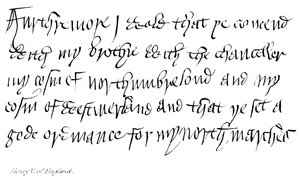 Furthremore I wold that ye comend
with my brothre with the chanceller
my cosin of northumbrelond and my
cosin of Westmerland and that ye set a
gode ordinance for my north marches
Henry V. of England.